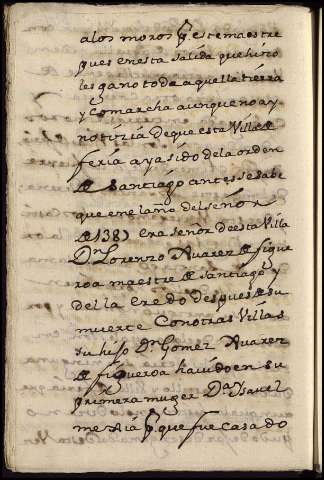 a los moros q̃ este maestre
pues en esta salida que hiço
les gano toda aquella tierra
y comarcha aunque no ay
notizia de que esta Villa de
feria aya sido de la orden
de Santiago antes se sabe
que en el año del señor
de 1387 era señor de esta Villa
Dⁿ Lorenzo Xuarez de figue
roa maestre de santiago y
del la eredo despues de su
muerte Con otras Villas
su hijo Dⁿ Gomez Xuarez
de figueroa havido en su
primera muger Dª Ysavel
mexia q̃. que fue casado